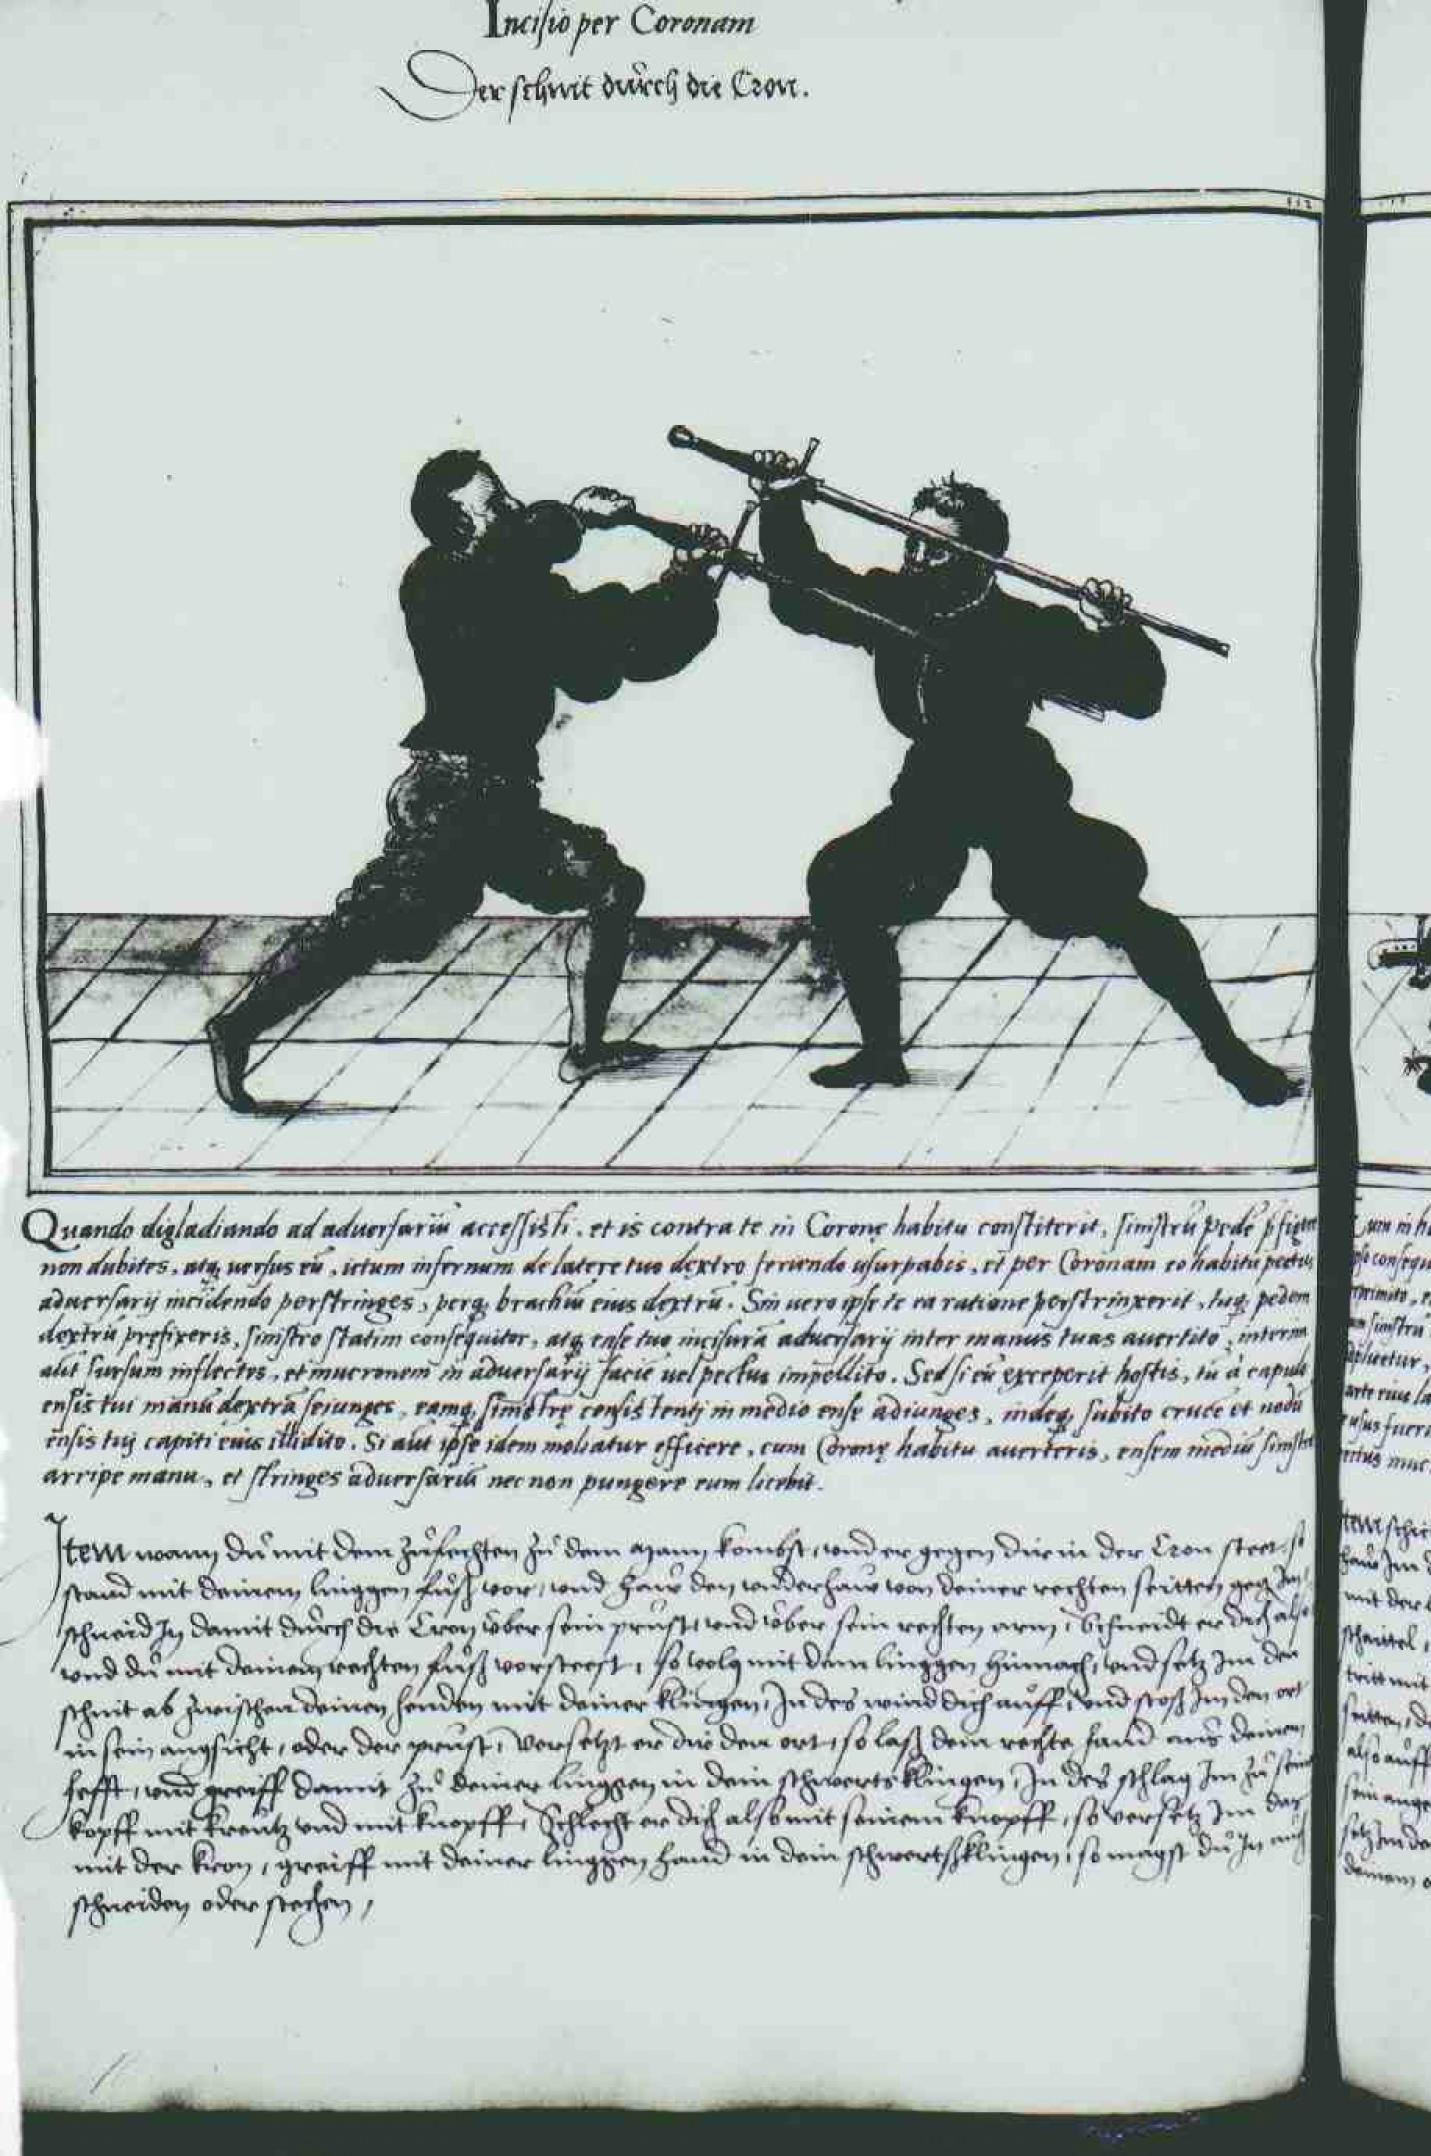 Incisio per Coronam
Der schnit durch die Cron.
Quando digladiando ad adversariū accessisti, et is contra te in Coronę habitu constiterit, sinistrū pedē
non dubites, atq; versus eū, ictum infernum de latere tuo dextro feriendo usurpabis, et per Coronam eo habitu pectus
adversarij incidendo perstringes, perq; brachiū eius dextrū. Sin vero ipse te ea ratione perstrinxerit, tuq; pedem
dextrū prefixeris, sinistro statim consequitor, atq; ense tuo incisurā adversarij inter manus tuas avertito, interim
aūt sursum inflectes, et mucronem in adversarij faciē vel pectus impellito. Sed si eū exceperit hostis, tu à capulo
ensis tui manū dextrā seiunges, eamq; sinistrę consistenti in medio ense adiunges, indeq; subito crucē et nodū
ensis tuj capiti eius illidito. Si aūt ipse idem moliatur efficere, cum Coronę habitu averteris, ensem mediū
arripe manu, et stringes adversariū nec non pungere eum licebit.
Item wann du mit dem zufechten zu dem mann kombst, und er gegen dir in der Cron steet, so
stand mit deinem linggen fuß vor, und haw den underhaw von deiner rechten seitten
schneid In damit durch die Cron über sein prust, und über sein rechten arm, Schneidt er dich also
und du mit deinem rechten fuß vorsteest, so volg mit dem linggen hinnach, und setz Im den
schnit ab zwischen deinen henden mit deiner klingen, In des wind dich auff, und stoß Im den ort
in sein angsicht, oder der prust, Versetzt er dir den ort, so laß dein rechte hand aus deinem
hefft, und greiff damit zu deiner linggen in dein schwertsklingen, In des schlag Im zu seim
kopff mit kreutz und mit knopff, Schlecht er dich also mit seinem knopff, so versetz Im das
mit der kron, greiff mit deiner linggen hand in dein schwertsklingen, so magst du In
schneiden oder stechen,